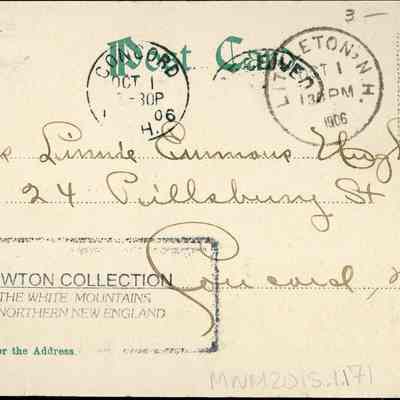 3 —
Post Card
CONCORD
OCT 1
-30P
06
H.
RECEIVED
LITTLETON, N.H.
OCT 1
130PM
1906
s Linnie Emmons
24 Pillsbury St
Concord, N
WTON COLLECTION
THE WHITE MOUNTAINS
NORTHERN NEW ENGLAND
or the Address
MNM2015.1171